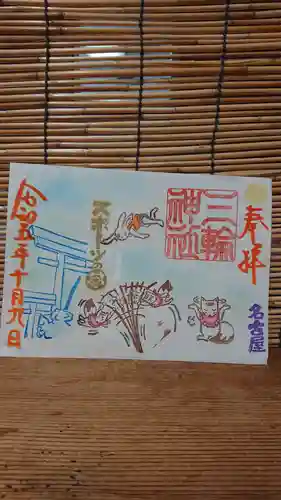 奉拝
名古屋
三輪
神社
スポーツの
令和五年十月九日